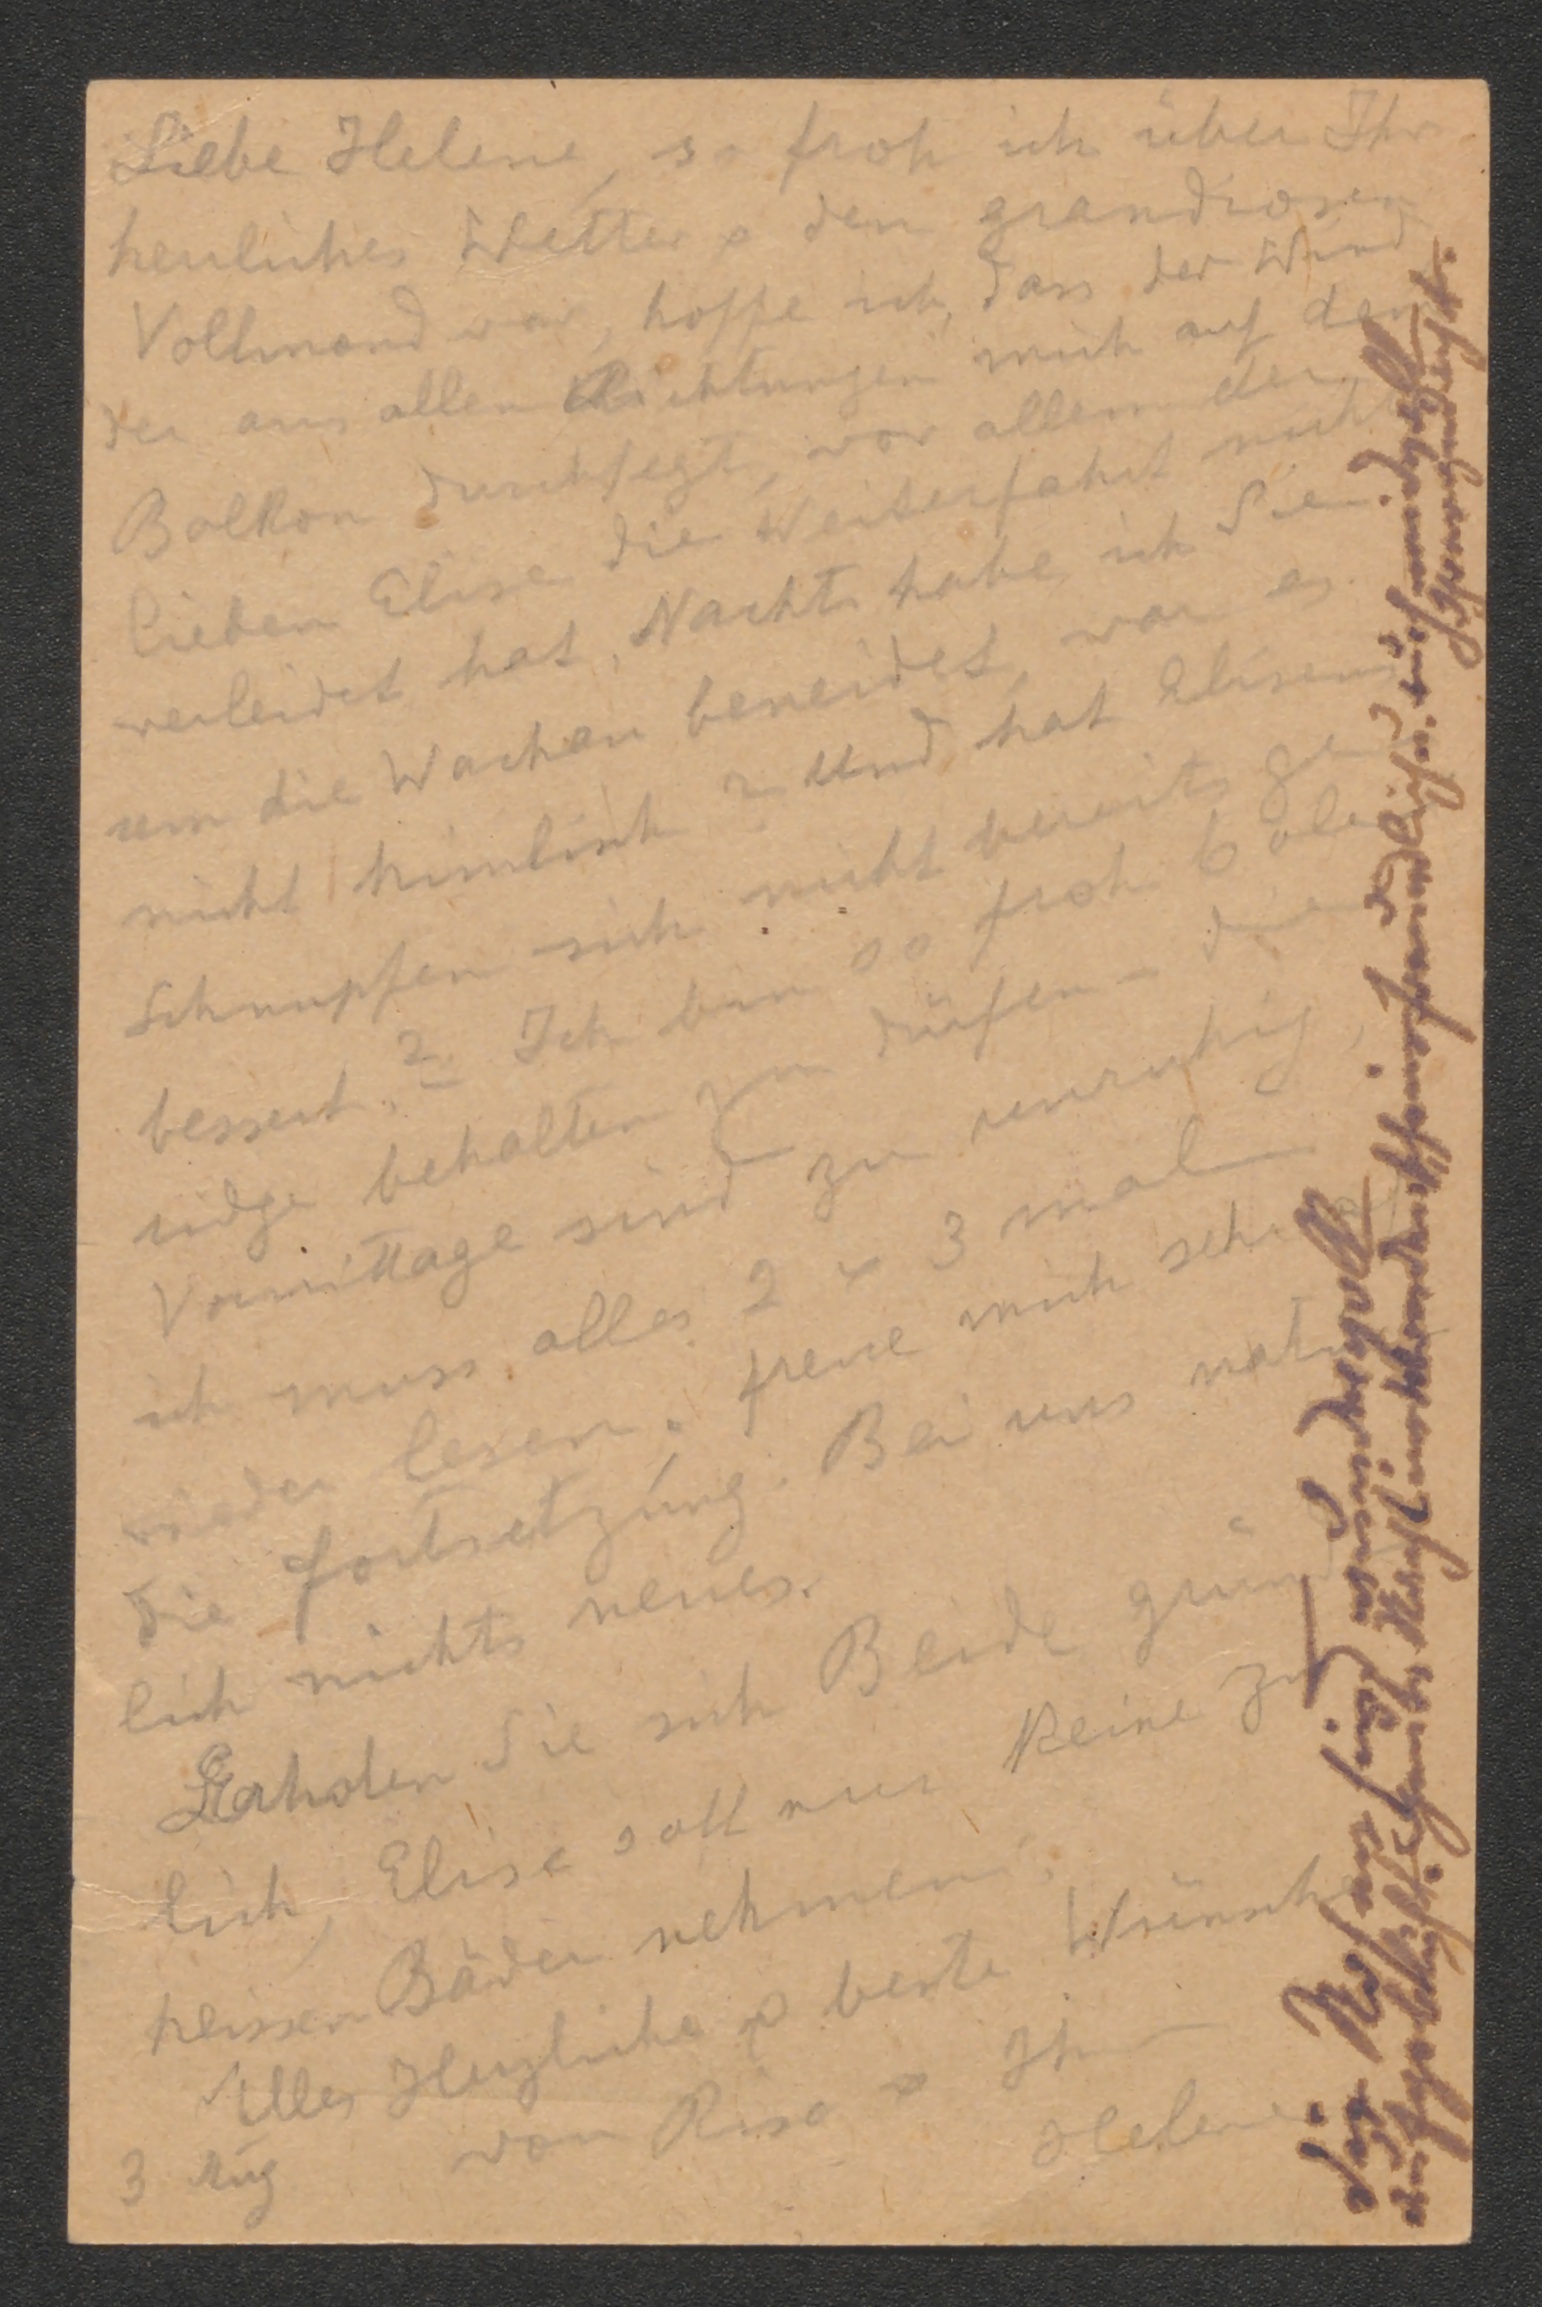 Liebe Helene, so froh ich über Ihr
herrliches Wetter & den grandiosen
Vollmond war, hoffe ich, dass der Wind
der aus allen Richtungen mich auf dem
Balkon durchfegt, vor allem der
lieben Elise die Weiterfahrt nicht
verleidet hat, Nachts habe ich Sie
um die Wachen beneidet, war es
nicht himlisch? Und hat Elisens
Schnupfen sich nicht bereits ge
bessert.? Ich bin so froh
behalten zu dürfen – die
Vormittage sind zu unruhig,
ich muss alles 2 & 3 mal
wieder lesen. freue mich sehr auf
die Fortsetzung. Bei uns natür
lich nichts neues.
Erholen Sie sich Beide gründ
lich, Elise soll nur keine zu
heissen Bäder nehmen.
Alles Herzliche & beste Wünsche
von Risa & Ihrer
3 Aug Helene
Die Rosen sind wundervoll